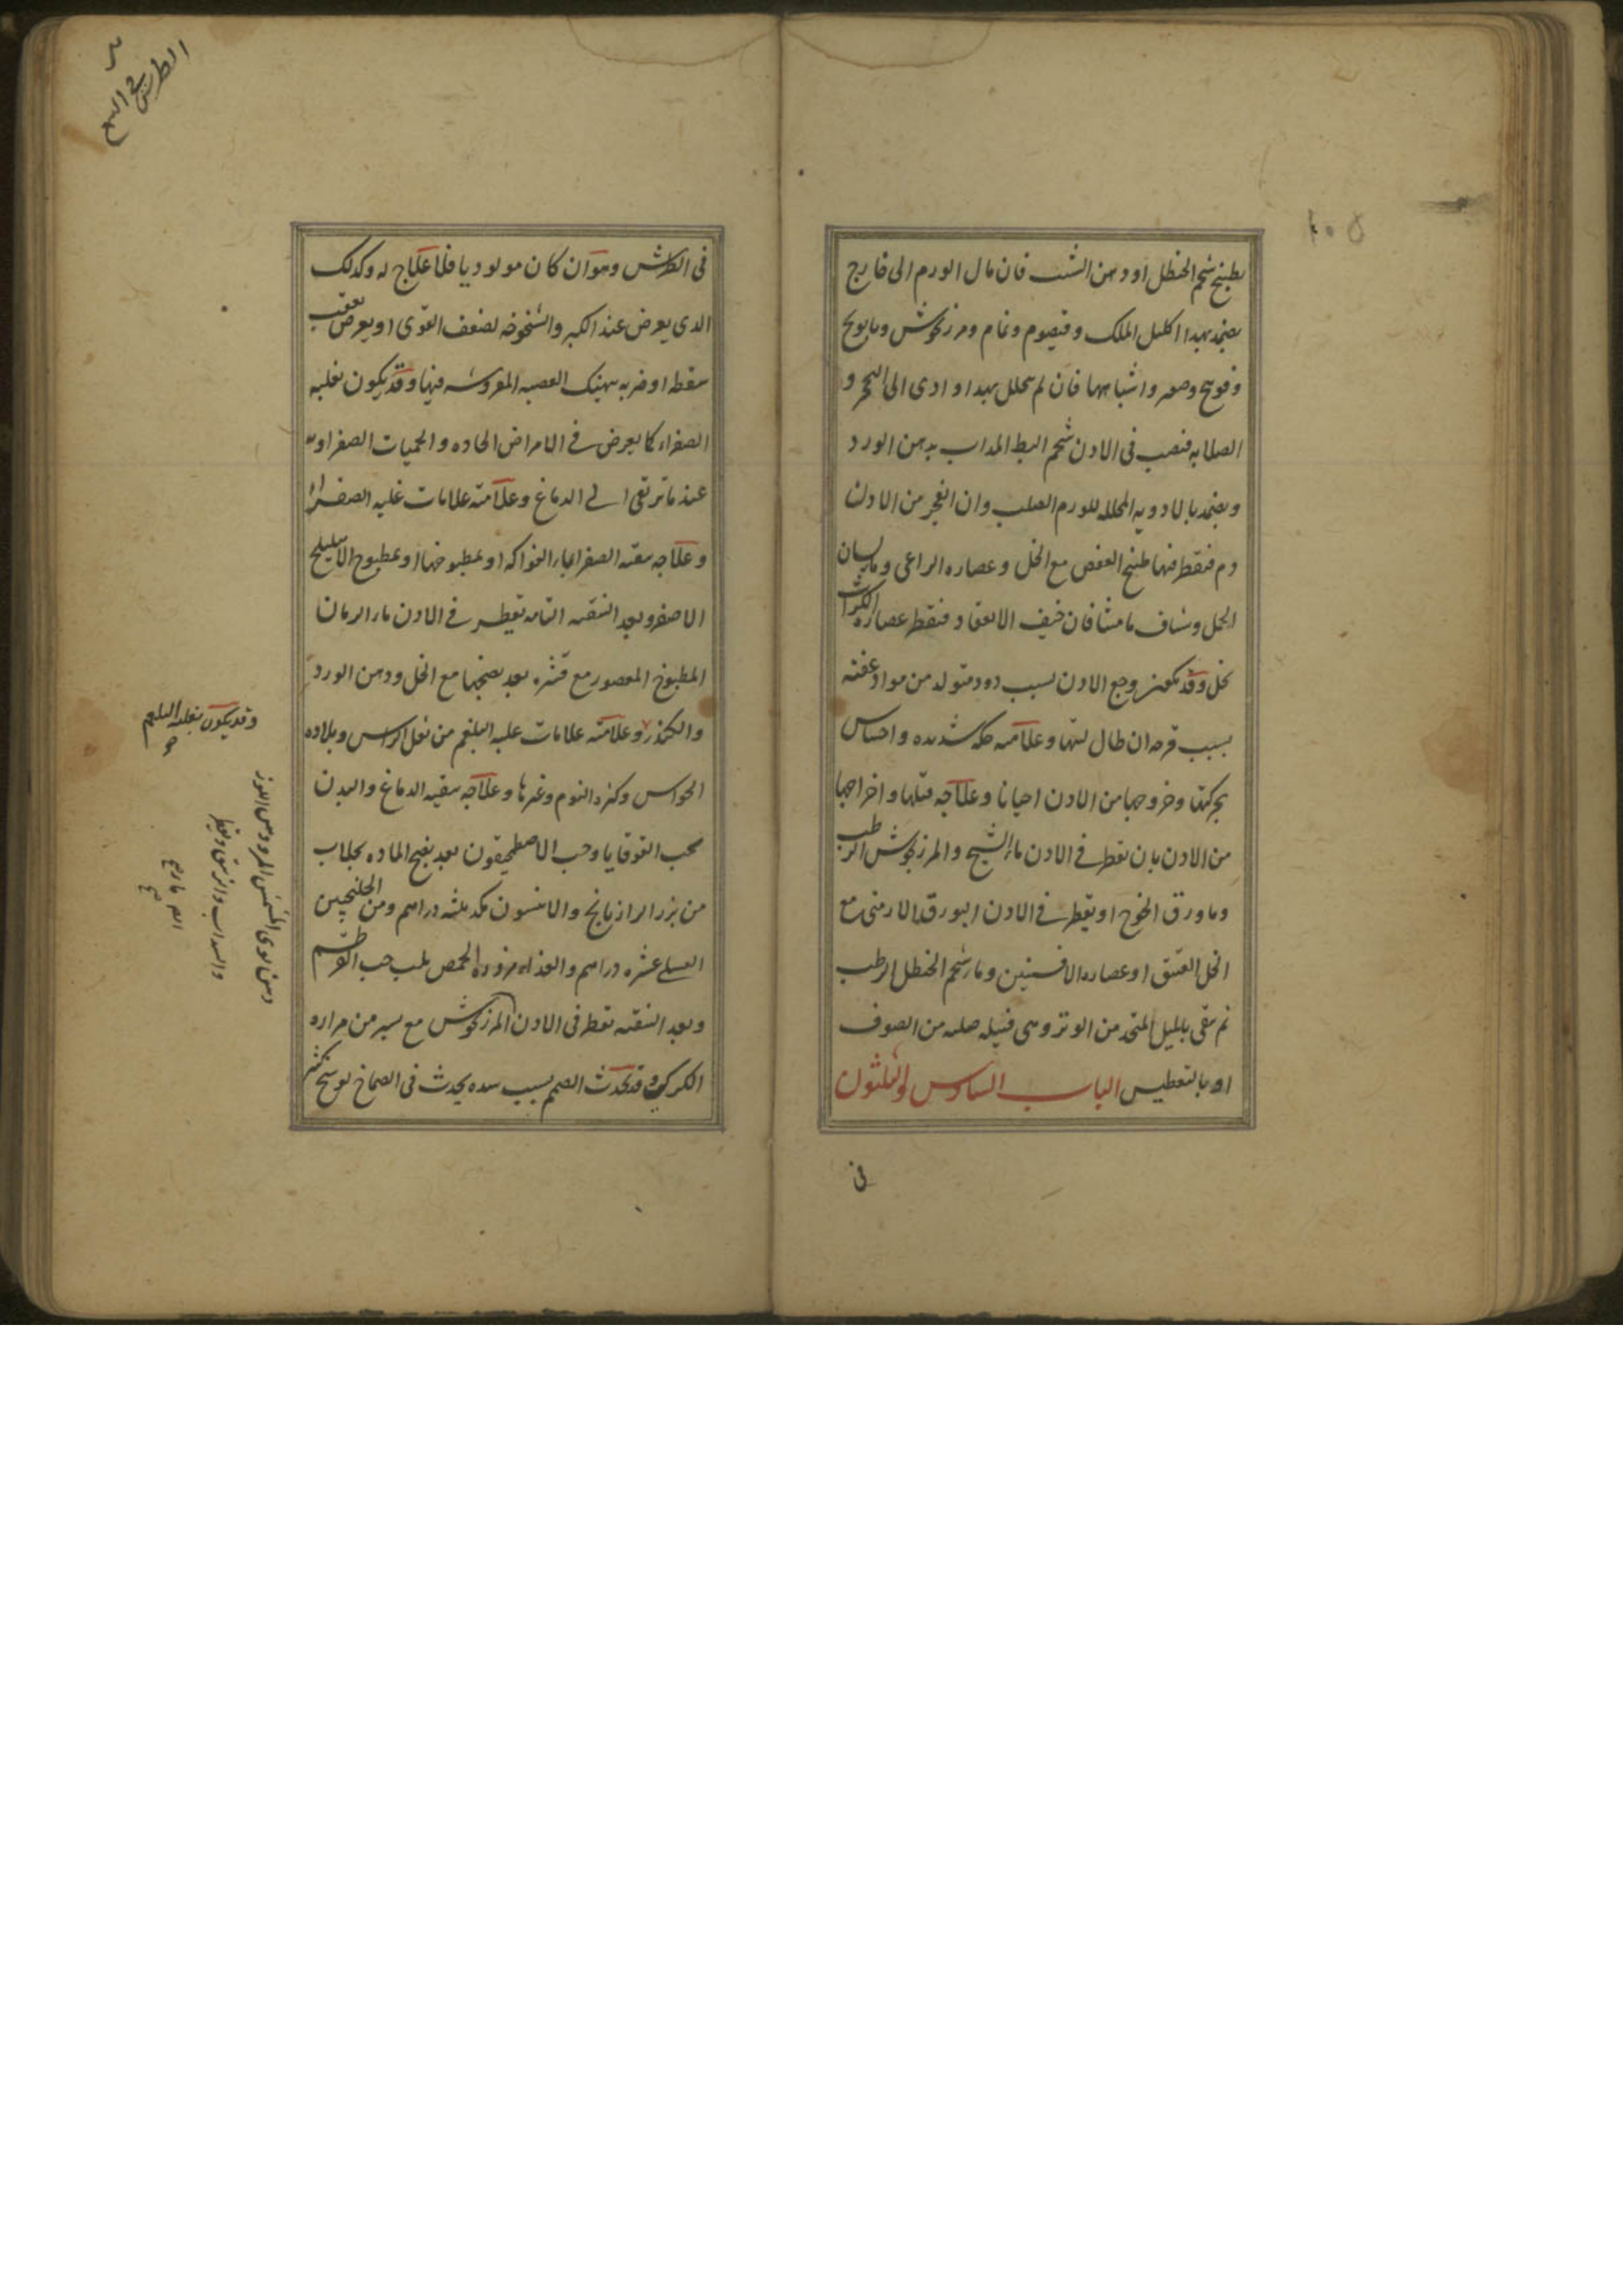 بطبيخ شحم الحنظل او دهن الشبت فان مال الورم الى خارج
يضمد بهذا اكليل الملك وقيصوم ونمام ومرزنجوش وبابونج
وفوتنج وصعتر واشباهها فان لم يتحلل بهذا وادى الى التحجر و
الصلابه فيصب فى الاذن شحم البط المذاب بدهن الورد
ويضمد بالادويه المحلله للورم الصلب وان انفجر من الاذن
دم فيقطر فيها طبيخ العفص مع الخل وعصاره الراعى وماء لسان
الحمل وشياف ماميثا فان خيف الانعقاد فيقطر عصاره الكراث
بخل وقد يكون وجع الاذن بسبب دود متولد من مواد عفنه
بسبب قرحه ان طال لبثها وعلامته حكه شديده واحساس
بحركتها وخروجها من الاذن احيانا وعلاجه قتلها واخراجها
من الاذن بان يقطر فى الاذن ماء الشيح والمرزنجوش الرطب
وماء ورق الخوخ او يقطر فى الاذن البورق الارمنى مع
الخل العتيق او عصاره الافسنتين وماء شحم الحنظل الرطب
ثم ينقى بالميل المتخذ من الوتر وهى فتيله صلبه من الصوف
او بالتعطيس الباب السادس والثلثون
فى
فى الطرش وهو ان كان مولوديا فلا علاج له وكذلك
الذى يعرض عند الكبر والشيخوخه لضعف القوى او يعرض عقيب
سقطه او ضربه يهتك العصبه المفروشه فيها وقد يكون لغلبه
الصفراء كما يعرض فى الامراض الحاده والحميات الصفراويه
عند ما ترتقى الى الدماغ وعلامته علامات غلبه الصفراء
وعلاجه تنقيه الصفراء بماء الفواكه او بمطبوخها او بمطبوخ الاهليلج
الاصفر وبعد التنقيه التامه تقطير فى الاذن ماء الرمان
المطبوخ المعصور مع قشره بعد نضجها مع الخل ودهن الورد
والكندر وعلامته علامات غلبه البلغم من ثقل الراس وبلاده
الحواس وكثره النوم وغيرها وعلاجه تنقيه الدماغ والبدن
بحب القوقايا وحب الاصطمحيقون بعد نضج الماده بجلاب
من بزر الرازيانج والانيسون مكد ثلثه دراهم ومن الجلنجبين
العسلى عشره دراهم والغذاء مزوره الحمص بلب حب القرطم
وبعد التنقيه يقطر فى الاذن المرزنجوش مع يسير من مراره
الكركى وقد يحدث الصمم بسبب سده يحدث فى الصماخ لوسخ كثير
وقد يكون بغلبه البلغم
دهن لوى المشمش المر ودهن اللوز
الطرش